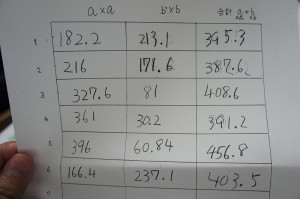 a×a b×b 合計 a²+b²
1 182.2 213.1 395.3
2 216 171.6 387.6
3 327.6 81 408.6
4 361 30.2 391.2
5 396 60.84 456.8
6 166.4 237.1 403.5